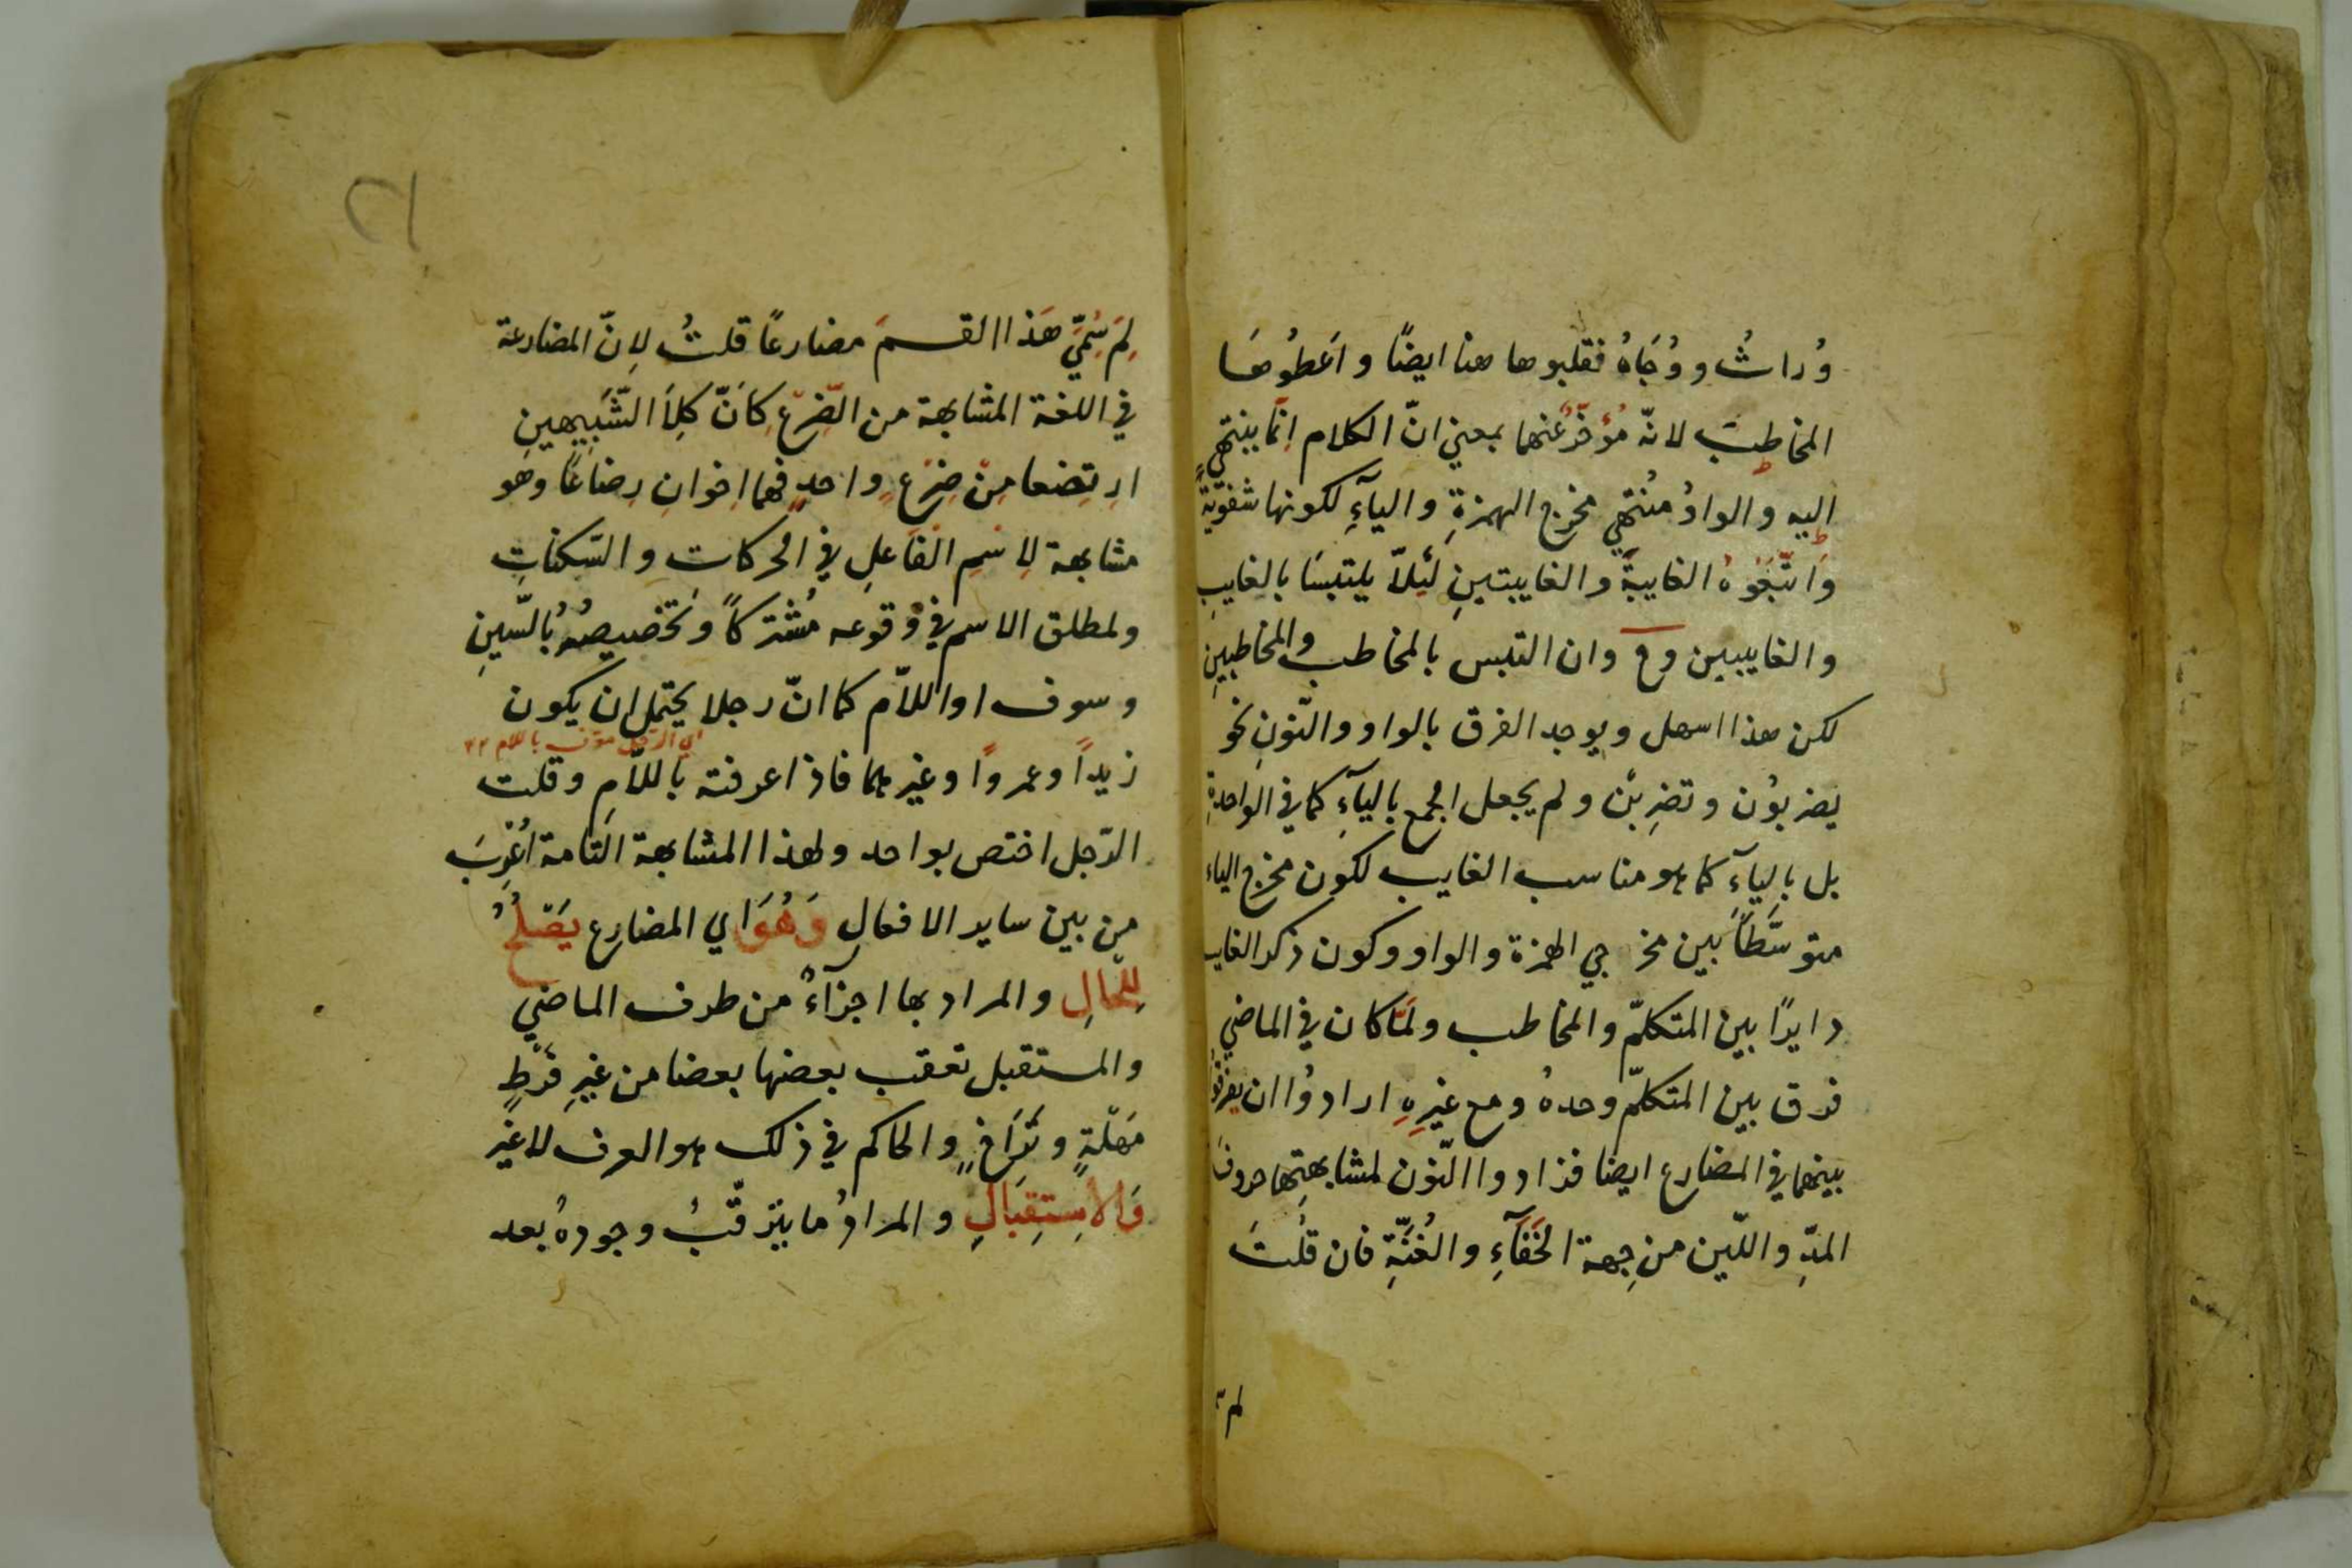 وُراثُ ووُجَاهُ فقلبوها هنا ايضًا واعَطُوهَا
المخاطِبَ لانّه مُؤخّرٌ عنهما بمعني انّ الكلام اِنّما ينتهي
اليه والواوُ مُنتَهي مخرج الهمزةِ والياَءِ لكونها شفويّةً
وَاتَّبَعُوهُ الغايبةَ والغايبتينِ لئلاّ يلتبسَا بالغايبِ
والغايبين وح وان التبس بالمخاطب والمخاطبينِ
لكن هذا اسهل ويوجد الفرق بالواو والنّونِ نحو
يضربوُن وتضرِبنْ ولم يجعل الجمع بالياَءِ كما في الواحدةِ
بل بالياَءِ كما هو مناسب الغايب لكون مخرج الياء
متوسَّطاً بين مخرجي الهمزة والواو وكون ذكر الغايب
دايرًا بين المتكلّم والمخاطب ولمَّا كان في الماضي
فرق بين المتكلّم وحدهُ ومع غيرِهِ ارادوُا ان يفرقوا
بينهما في المضارع ايضا فزادوا النّون لمشابهتِها حروفَ
المدِّ واللّين من جِهة الخَفَآءِ والغُنَّةِ فان قلُتَ
لم
١٢
لِمَ سُمّيَ هَذا القسمَ مضارعًا قلتُ لاِنّ المضارعة
في اللغة المشابهة من الضّرع كانّ كِلاَ الشَّبيهينِ
ارتِضعا مِنْ ضِرْعٍ واحدٍ فهما اخوانِ رِضاعًا وهو
مشابهة لاِسْمِ الفَاعلِ في الحركاتِ والسّكناتِ
ولمطلق الاسم في وُقوعه مُشْتركًا وتخصيصُهُ بُالسّينِ
وسوف او اللاّم كما انّ رجلا يحتمل ان يكون
اي الرجل معرف باللام ١٢
زيداً وعمروًا وغيرهما فاذا عرفته باللاّمِ وقلت
الرّجل اختص بواحد ولهذا المشابهة التّامة اُعْرِبَ
من بين ساير الافعالِ وَهُوَ اي المضارع يَصْلُحُ
لِلْحَالِ والمراد بها اجزآءُ من طرف الماضي
والمستقبل تعقب بعضها بعضا من غيرِ فرْطٍ
مَهْلَةٍ وتَراخٍ والحاكم في ذلك هو العرف لا غير
وَالاِسْتِقِبَالِ والمرادُ ما يترقّبُ وجودهُ بعد